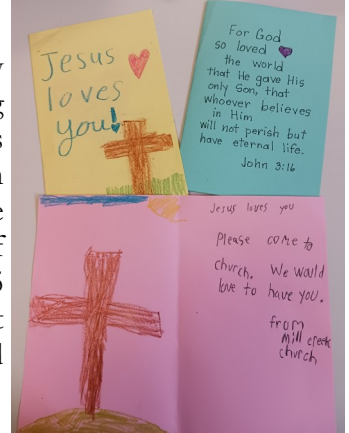 Jesus
loves
you!
For God
so loved
the world
that He gave His
only Son, that
whoever believes
in Him
will not perish but
have eternal life.
John 3:16
Jesus loves you
Please come to
church. We would
love to have you.
from
Mill creek
church